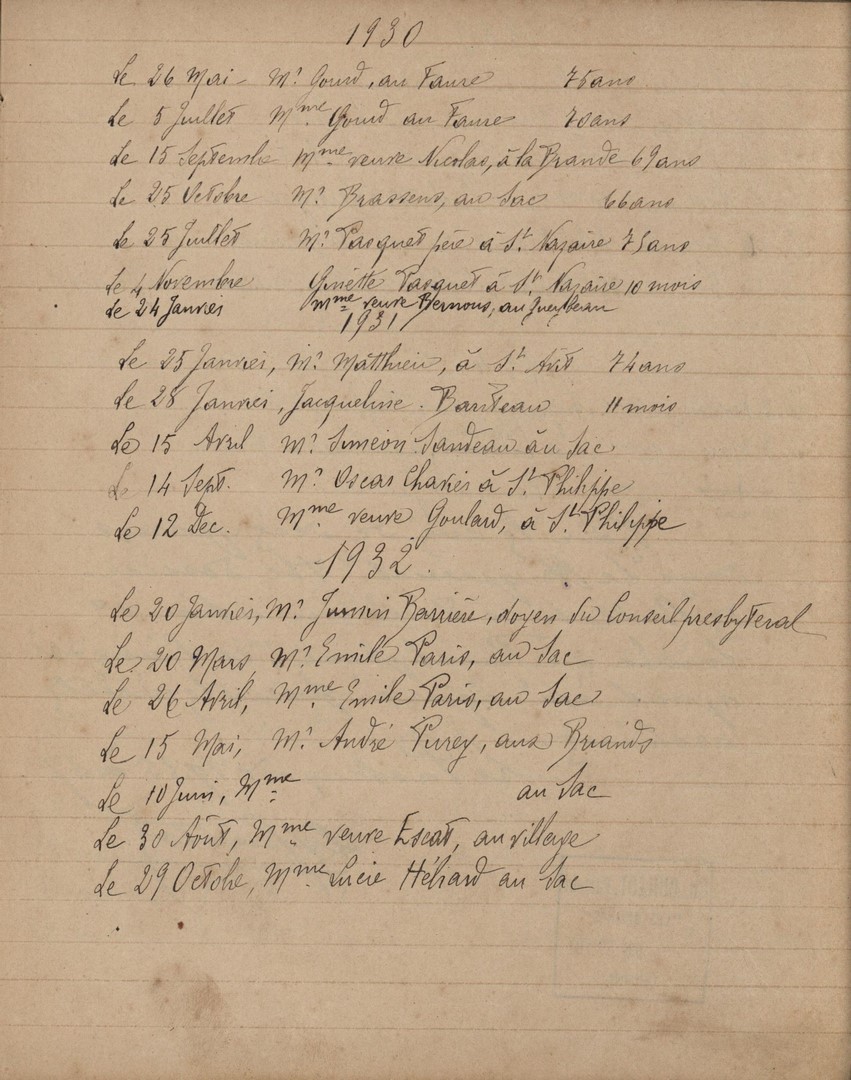 1930
Le 26 Mai - Mr Gourd, au Faure 75 ans
Le 5 Juillet Mme Gourd au Faure 70 ans
Le 15 Septembre Mme veuve Nicolas, à la Brande 69 ans
Le 25 Octobre Mr Brassens, au Sac 66 ans
Le 25 Juillet Mr Pasquet père à St. Nazaire 75 ans
Le 4 Novembre Ginette Pasquet à St. Nazaire 10 mois
Le 24 Janvier Mme veuve Bernous, au
1931
Le 25 Janvier, Mr Matthieu, à St. Avit 74 ans
Le 28 Janvier, Jacqueline Bariteau 11 mois
Le 15 Avril Mr Siméon Sandeau au Sac
Le 14 Sept. Mr Oscar Charier à St. Philippe
Le 12 Dec. Mme veuve Goulard, à St. Philippe
1932.
Le 20 Janvier, Mr Barrière, doyen du Conseil presbyteral
Le 20 Mars, Mr Emile Paris, au Sac
Le 26 Avril, Mme Emile Paris, au Sac
Le 15 Mai, Mr André Purey, aux Briands
Le 10 Juin, Mme au Sac
Le 30 Août, Mme veuve Escat, au village
Le 29 Octobe, Mme Lucie Héliard au Sac